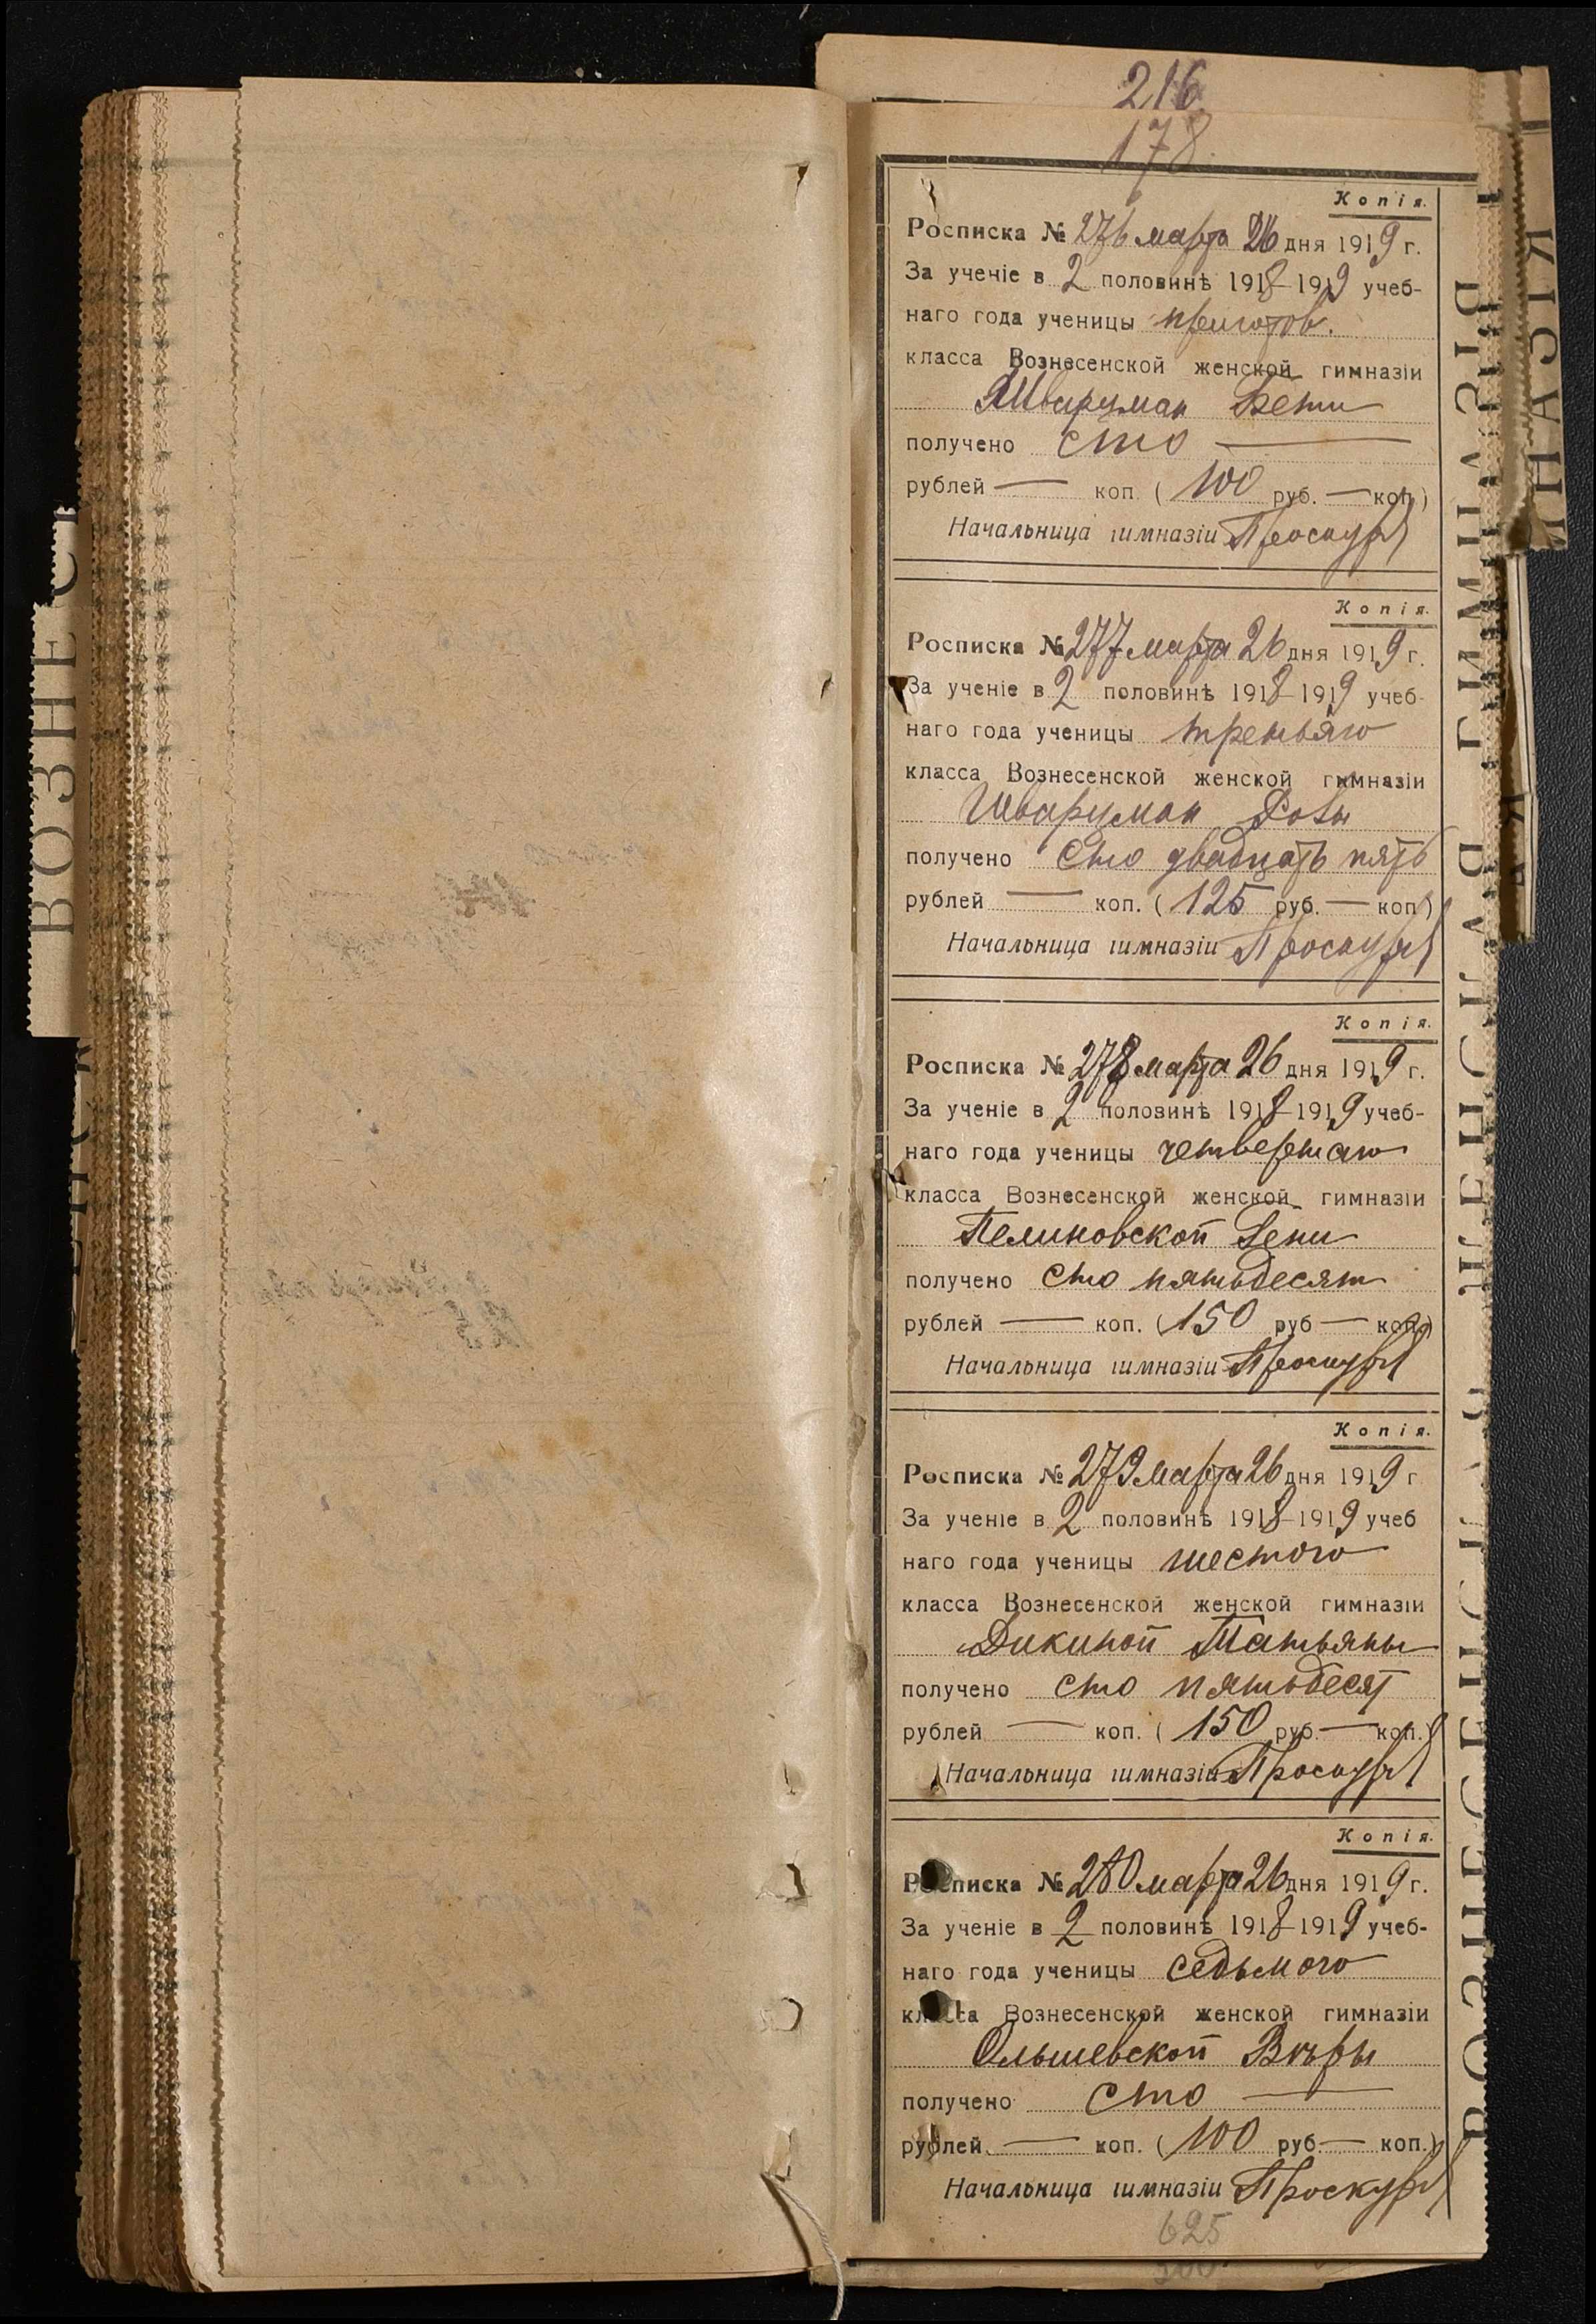 ВОЗНЕС
216
178
Копія.
Росписка № 276 марта 26 дня 1919 г.
За ученіе в 2 половинѣ 1918-1919 учеб-
наго года ученицы приготов.
класса Вознесенской женской гимназіи
Шварцман Бети
получено сто —
рублей — коп. (100 руб. — коп.)
Начальница гимназіи
Копія.
Росписка № 277 марта 26 дня 1919 г.
За ученіе в 2 половинѣ 1918-1919 учеб-
наго года ученицы третьяго
класса Вознесенской женской гимназіи
Шварцман Розы
получено сто двадцать пять
рублей — коп. (125 руб. — коп)
Начальница гимназіи
Копія.
Росписка № 278 марта 26 дня 1919 г.
За ученіе в 2 половинѣ 1918-1919 учеб-
наго года ученицы четвертаго
класса Вознесенской женской гимназіи
Пелиновской
получено сто пятьдесят
рублей — коп. (150 руб — коп.)
Начальница гимназіи
Копія.
Росписка № 279 марта 26 дня 1919 г
За ученіе в 2 половинѣ 1918-1919 учеб
наго года ученицы шестого
класса Вознесенской женской гимназіи
Дикиной Татьяны
получено сто пятьдесят
рублей — коп. (150 руб. — коп.)
Начальница гимназіи
Копія.
Росписка № 280 марта 26 дня 1919 г.
За ученіе в 2 половинѣ 1918-1919 учеб-
наго года ученицы седьмого
класса Вознесенской женской гимназіи
Ольшевской Вѣры
получено сто —
рублей — коп. (100 руб — коп.)
Начальница гимназіи
625